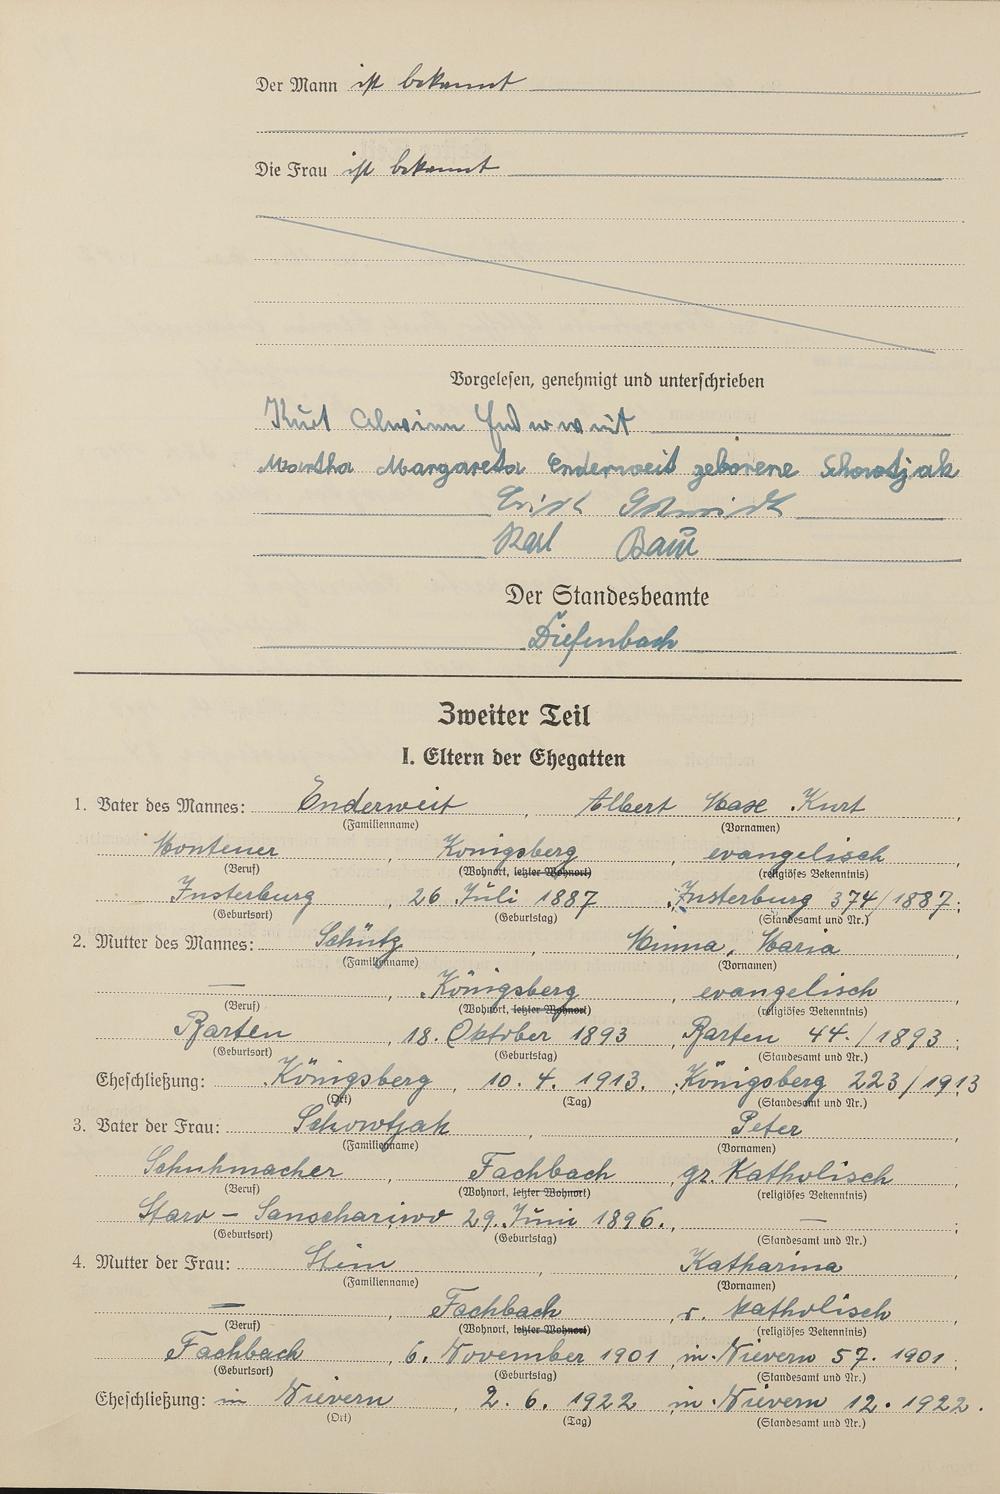 Der Mann ist bekannt
Die Frau ist bekannt
Vorgelesen, genehmigt und unterschrieben
Kurt Alwinn Enderweit
Martha Margareta Enderweit geborene Schowtjak
Erich Schmidt
Karl Baur
Der Standesbeamte
Diefenbach
Zweiter Teil
I. Eltern der Ehegatten
1. Vater des Mannes: Enderweit, Albert Max Kurt,
(Familienname) (Vornamen)
Monteuer, Königsberg, evangelisch
(Beruf) (Wohnort, letzter Wohnort) (religiöses Bekenntnis)
Insterburg, 26 Juli 1887, Insterburg 374/1887;
(Geburtsort) (Geburtstag) (Standesamt und Nr.)
2. Mutter des Mannes: Schütz, Minna, Maria,
(Familienname) (Vornamen)
—, Königsberg, evangelisch,
(Beruf) (Wohnort, letzter Wohnort) (religiöses Bekenntnis)
Barten, 18. Oktober 1893, Barten 44./1893;
(Geburtsort) (Geburtstag) (Standesamt und Nr.)
Eheschließung: Königsberg, 10. 4. 1913. Königsberg 223/1913
(Ort) (Tag) (Standesamt und Nr.)
3. Vater der Frau: Schowtjak, Peter,
(Familienname) (Vornamen)
Schuhmacher, Fachbach, gr. Katholisch
(Beruf) (Wohnort, letzter Wohnort) (religiöses Bekenntnis)
Staro - Sanschariwo 29. Juni 1896., — ;
(Geburtsort) (Geburtstag) (Standesamt und Nr.)
4. Mutter der Frau: Stein, Katharina,
(Familienname) (Vornamen)
—, Fachbach, r. Katholisch,
(Beruf) (Wohnort, letzter Wohnort) (religiöses Bekenntnis)
Fachbach, 6. November 1901, in Nievern 57. 1901;
(Geburtsort) (Geburtstag) (Standesamt und Nr.)
Eheschließung: in Nievern, 2. 6. 1922, in Nievern 12. 1922.
(Ort) (Tag) (Standesamt und Nr.)